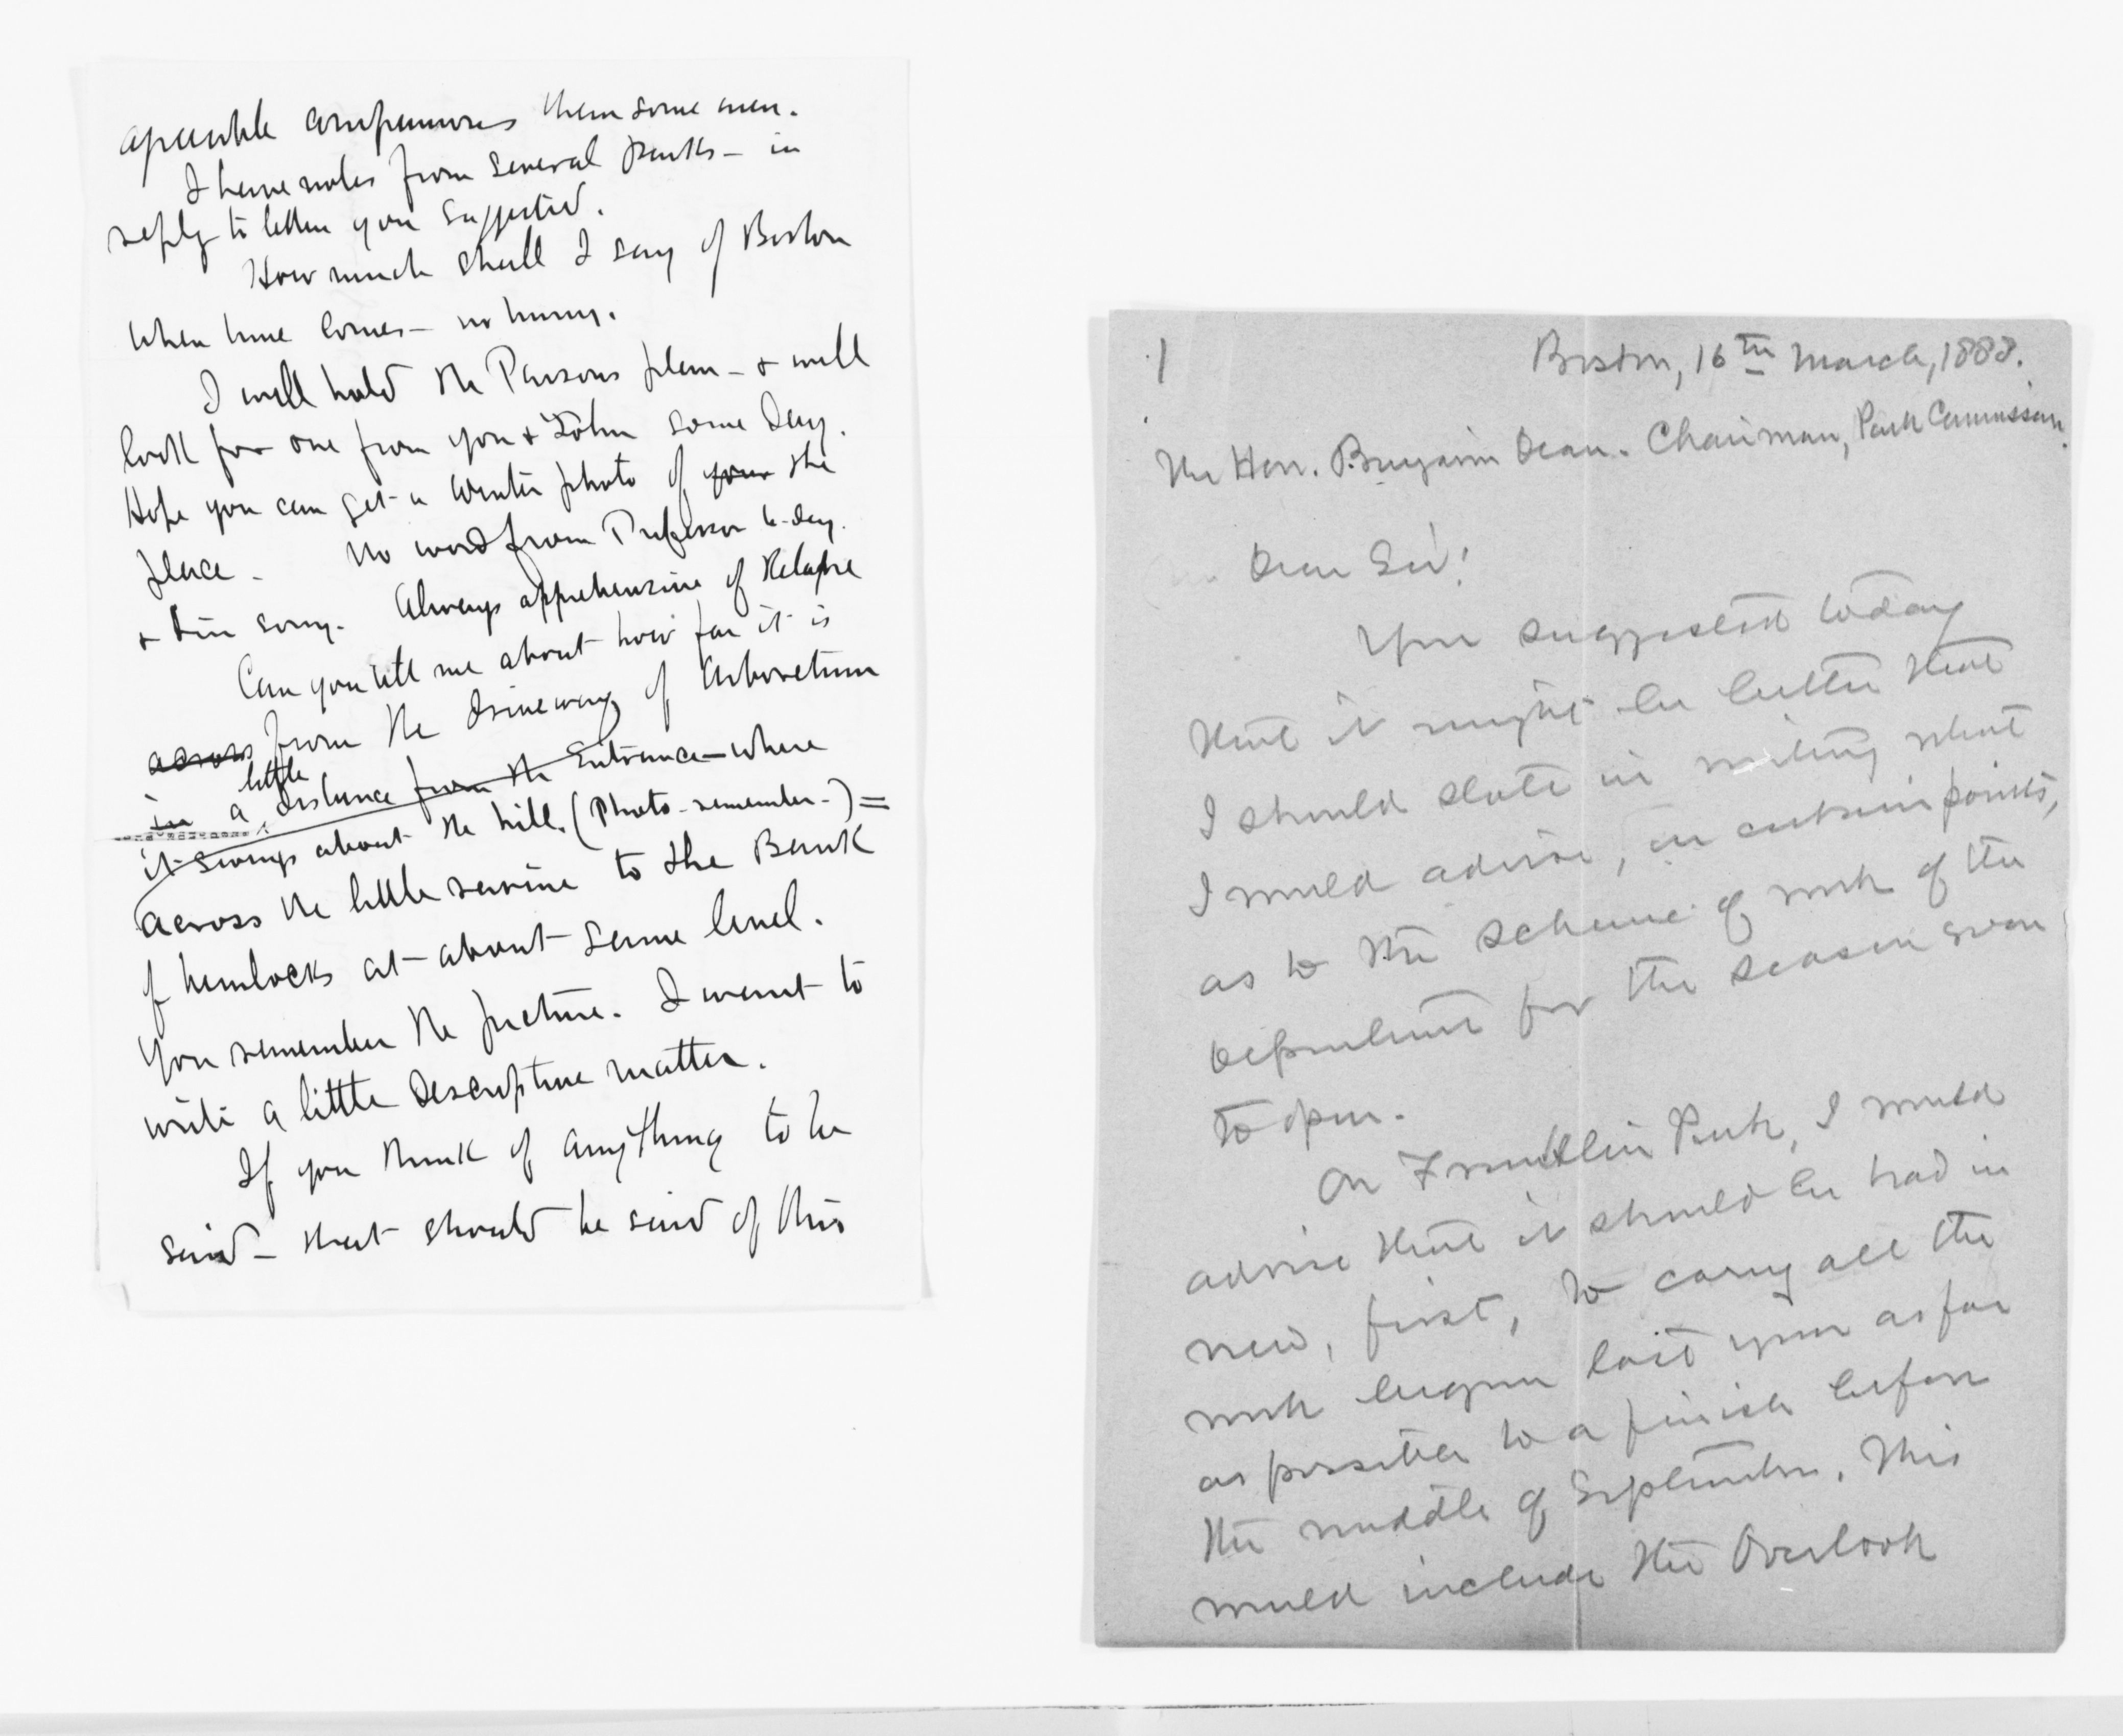 agreeable companions than some men.
I have notes from several parks – in
reply to letters you suggested.
How much shall I say of Boston
when time comes – no hurry.
I will hold the Parsons plan – & will
look for one from you & John some day.
Hope you can get a winter photo of your the
place – No word from Professor to-day.
& I'm sorry. Always apprehensive of Relapse
Can you tell me about how far it is
across from the driveway of Arboretum
in a little distance from the Entrance – where
it swings about the hill. (Photo – remember –) =
across the little ravine to the Bank
of hemlocks at about same level.
You remember the picture. I want to
write a little descriptive matter.
If you think of anything to be
said – that should be said of this
1
Boston, 16th March, 1888.
The Hon. Benjamin Dean. Chairman, Park Commission.
Dear Sir!
You suggested today
that it might be better that
I should state in writing what
I would advise, in certain points,
as to the scheme of work of the
Department for the season soon
to open.
On Franklin Park, I would
advise that it should be had in
view, first, to carry all the
work begun last year as far
as possible to a finish before
the middle of September. This
would include the Overlook